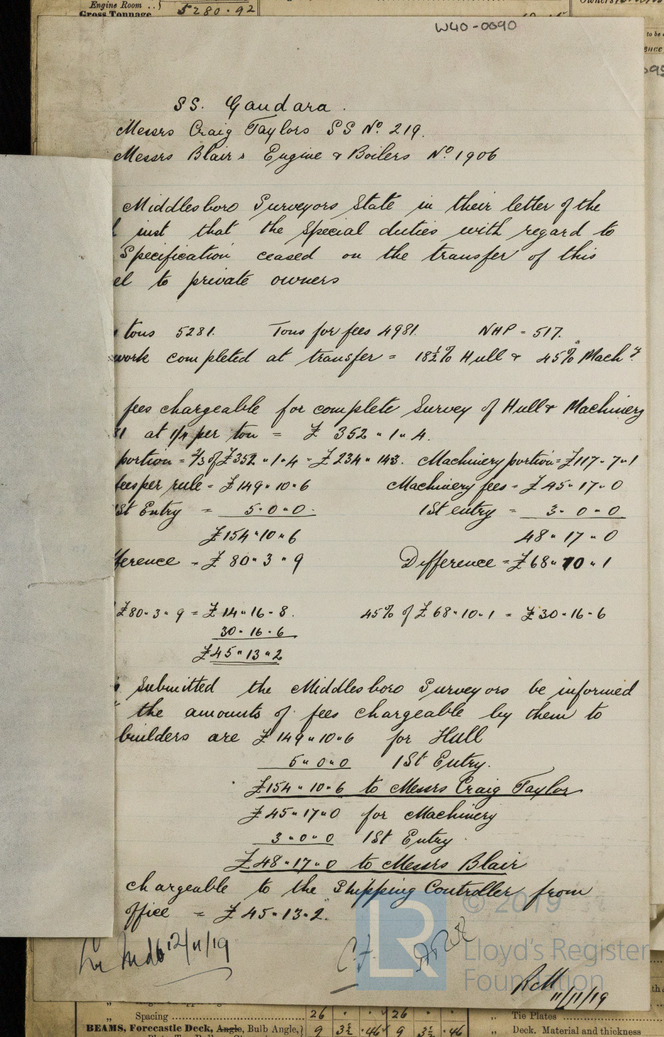 Engine Room ..
Gross Tonnage
5280.92
W40-0090
SS. Gandara.
Messrs Craig Taylors SS No. 219.
Messrs Blair's Engine & Boilers No. 1906
Middlesboro Surveyors State in their letter of the
inst that the special duties with regard to
Specification ceased on the transfer of this
el to private owners
tons 5281. Tons for fees 4981. NHP - 517.
work completed at transfer = 18½% Hull & 45% Mach'y.
fees chargeable for complete Survey of Hull & Machinery
81 at 1/4 per ton = £ 352 " 1 " 4.
portion = ⅔ of £352 " 1 - 4 = £234 " 14 3. Machinery portion = £117 - 7 - 1
fees per rule = £149 " 10 " 6 Machinery fees = £45 - 17 - 0
1st Entry = 5 - 0 - 0. 1st entry = 3 - 0 - 0
£154 " 10 " 6 48 " 17 - 0
ference = £ 80 " 3 " 9 Difference = £68 " 10 " 1
£80 - 3 - 9 = £14 " 16 - 8. 45% of £68 - 10 - 1 = £30 - 16 - 6
30 - 16 - 6
£45 " 13 " 2
Submitted the Middlesboro Surveyors be informed
the amounts of fees chargeable by them to
builders are £149 " 10 " 6 for Hull
5 " 0 " 0 1st Entry.
£154 " 10 - 6 to Messrs Craig Taylor
£45 - 17 - 0 for Machinery
3 - 0 - 0 1st Entry
£48 - 17 - 0 to Messrs Blair
chargeable to the Shipping Controller from
office = £45 - 13 - 2.
12/11/19
11/11/19
© 2019
LR
Lloyd's Register
Foundation
Spacing 26 " " 26
BEAMS, Forecastle Deck, Angle, Bulb Angle, 9 3½ .46 9 3½ .46
" Tie Plates
" Deck. Material and thickness